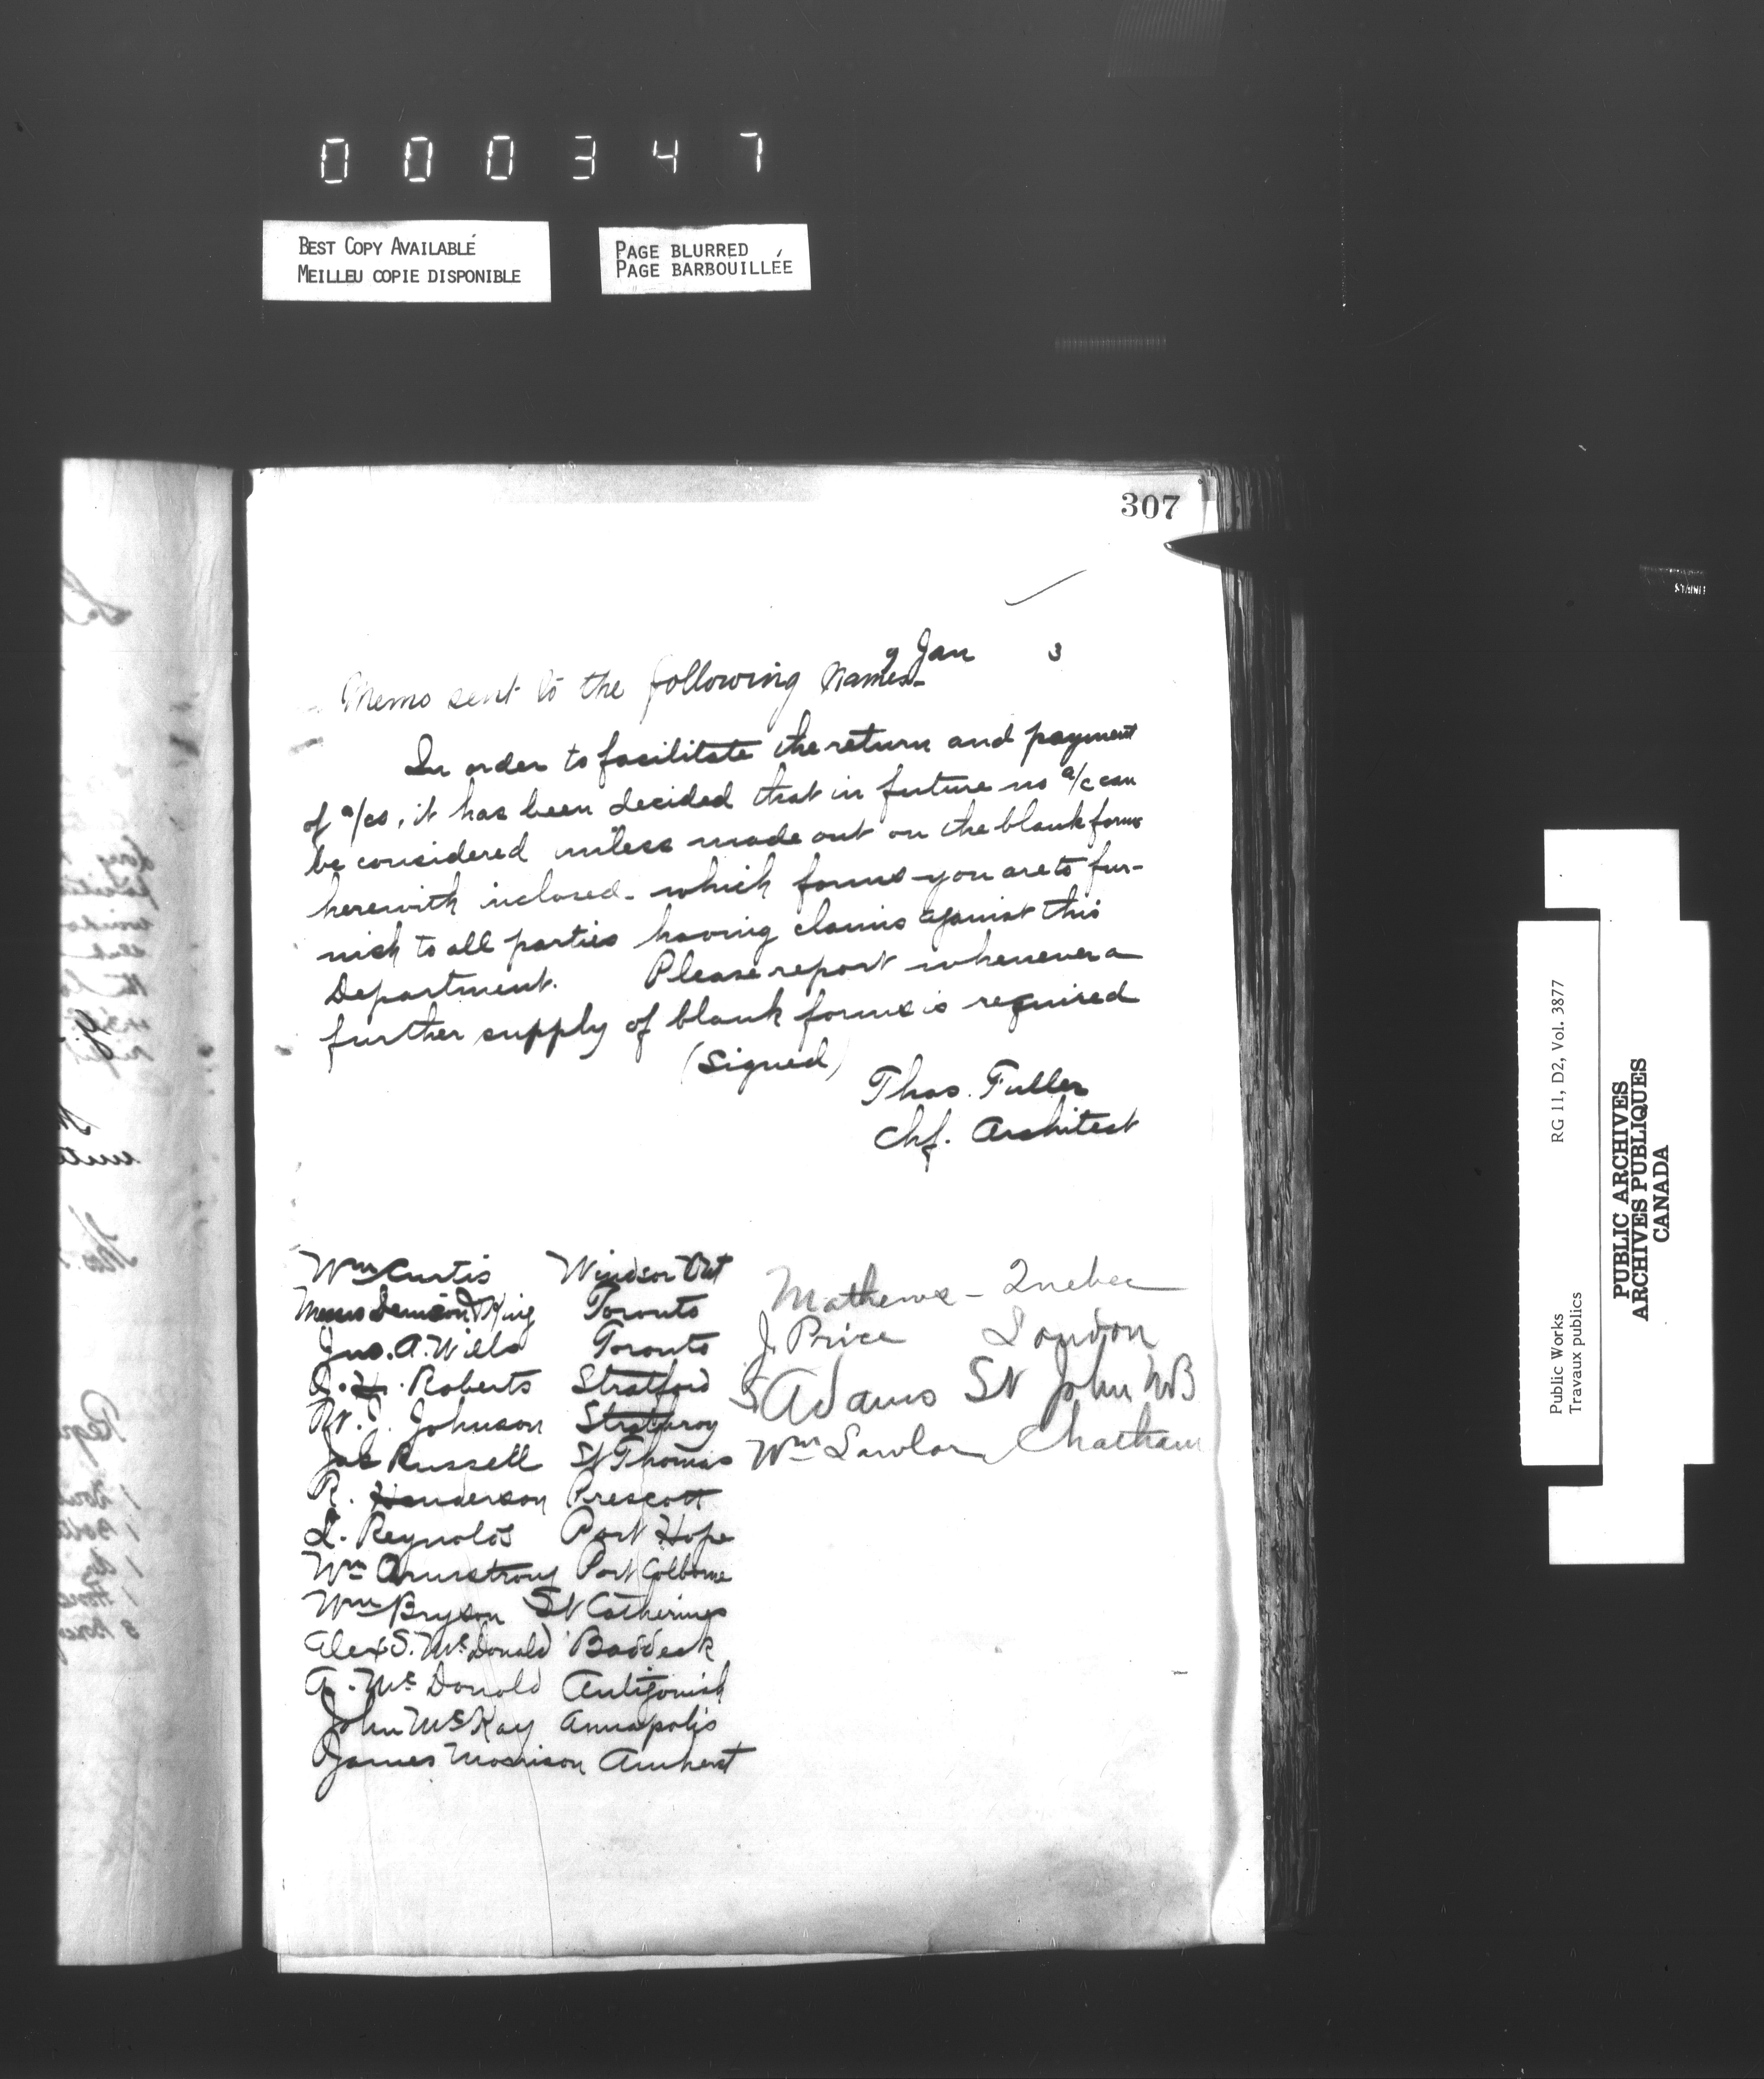 000347
BEST COPY AVAILABLE
MEILLEU COPIE DISPONIBLE
PAGE BLURRED
PAGE BARBOUILLÉE
307
9 Jan 3
Memo sent to the following Names -
In order to facilitate the return and payment
of a/cs, it has been decided that in future no a/c can
be considered unless made out on the blank forms
herewith inclosed - which forms you are to fur-
nish to all parties having claims against this
Department. Please report whenever a
further supply of blank forms is required
(Signed)
Thos. Fuller
Chf. Architect
Wm Curtis Windsor Ont
Messrs Denison & King Toronto
Jno. A. Wills Toronto
J. H. Roberts Stratford
Johnson Strathroy
Jas Russell St Thomas
R. Henderson Prescott
L. Reynolds Port Hope
Wm Armstrong Port Colborne
Wm Bryson St Catherines
Alex S. McDonald Baddeck
A. McDonald Antigonish
John McKay Annapolis
James Morrison Amherst
Mathews - Quebec
J. Price London
S Adams St John NB
Wm Lawlor Chatham
Public Works
Travaux publics
RG 11, D2, Vol. 3877
PUBLIC ARCHIVES
ARCHIVES PUBLIQUES
CANADA